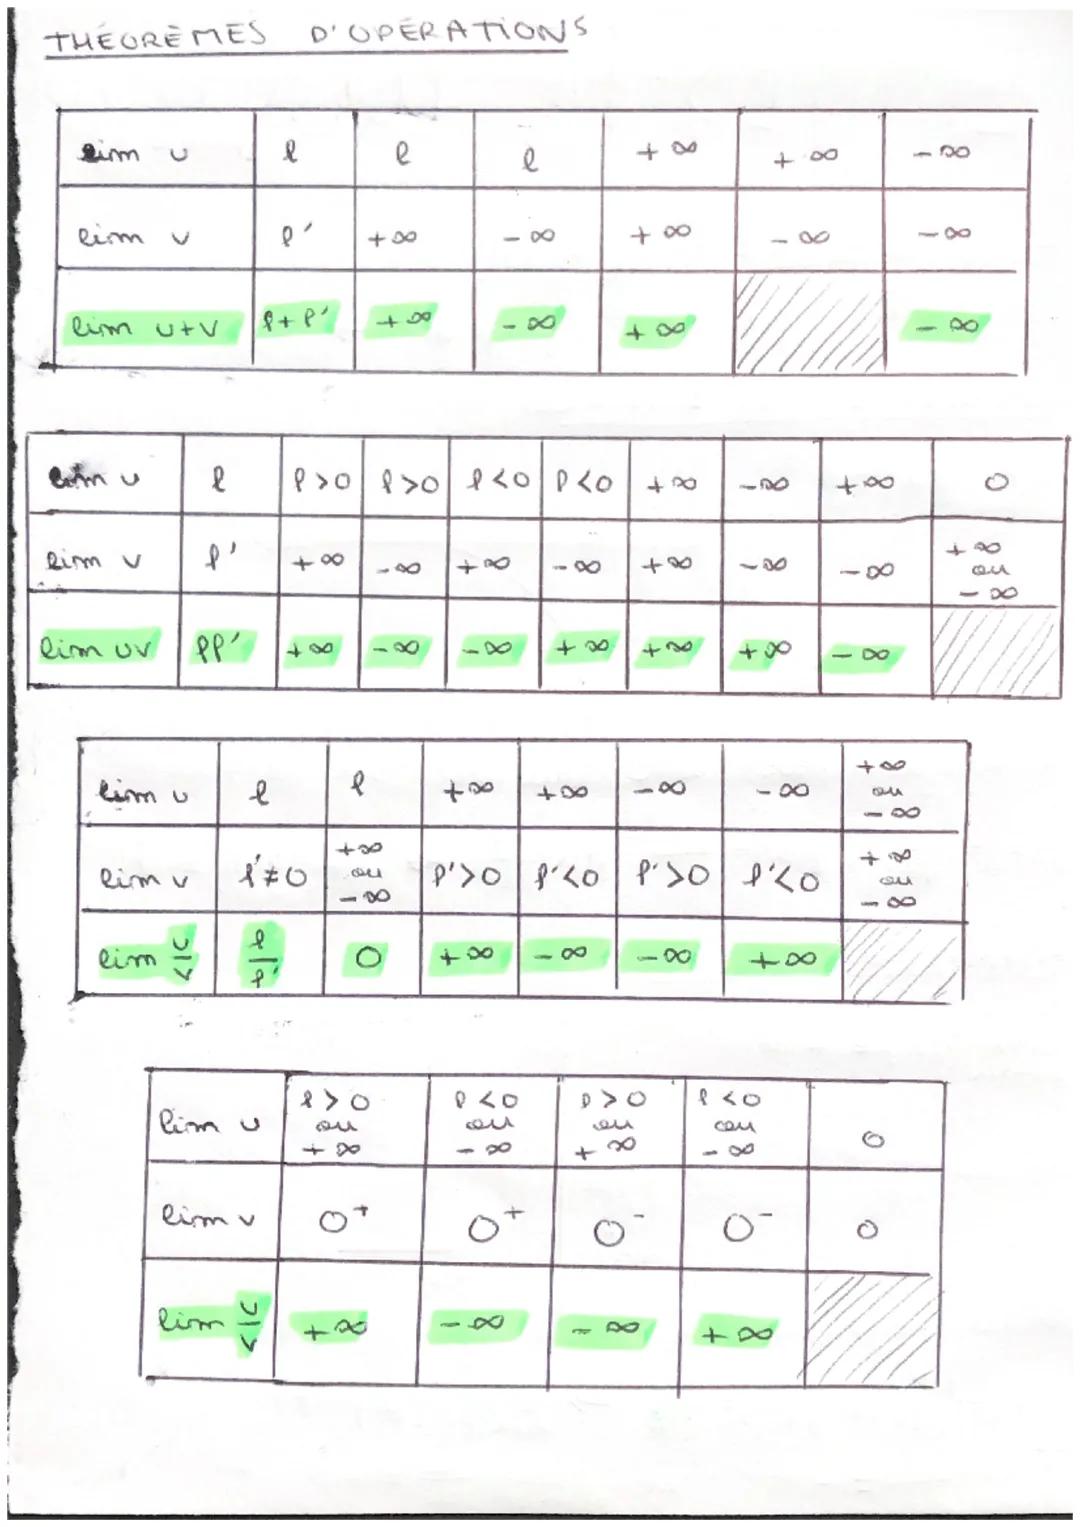 THÉORÈMES D'OPÉRATIONS
lim u | l | l | l | +∞ | +∞ | -∞
lim v | l' | +∞ | -∞ | +∞ | -∞ | -∞
lim u+v | l+l' | +∞ | -∞ | +∞ | | -∞
lim u | l | l>0 | l>0 | l<0 | l<0 | +∞ | -∞ | +∞ | 0
lim v | l' | +∞ | -∞ | +∞ | -∞ | +∞ | -∞ | -∞ | +∞ ou -∞
lim uv | ll' | +∞ | -∞ | -∞ | +∞ | +∞ | +∞ | -∞ |
lim u | l | l | +∞ | +∞ | -∞ | -∞ | +∞ ou -∞
lim v | l'≠0 | +∞ ou -∞ | l'>0 | l'<0 | l'>0 | l'<0 | +∞ ou -∞
lim u/v | l/l' | 0 | +∞ | -∞ | -∞ | +∞ |
lim u | l>0 ou +∞ | l<0 ou -∞ | l>0 ou +∞ | l<0 ou -∞ | 0
lim v | 0⁺ | 0⁺ | 0⁻ | 0⁻ | 0
lim u/v | +∞ | -∞ | -∞ | +∞ |